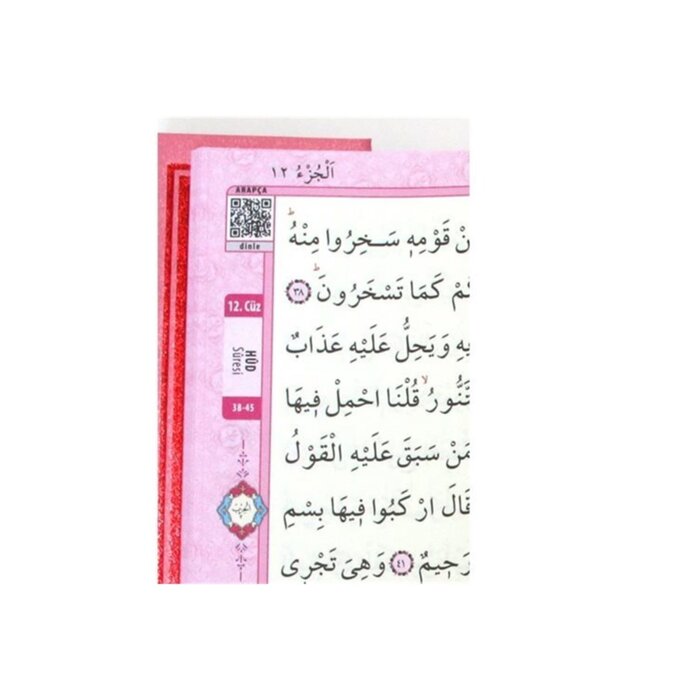 اَلْجُزْءُ ١٢
ARAPÇA
dinle
12. Cüz
HÛD
Sûresi
38-45
نْ قَوْمِهٖ سَـخِرُوا مِنْهُۜ
كُمْ كَمَا تَسْخَرُونَۜ ٣٨
يهِ وَيَحِلُّ عَلَيْهِ عَذَابٌ
تَّنُّورُۙ قُلْنَا احْمِلْ فٖيهَا
مَنْ سَبَقَ عَلَيْهِ الْقَوْلُ
قَالَ ارْكَبُوا فٖيهَا بِسْمِ
رَحٖيمٌ ٤١ وَهِيَ تَجْرٖي